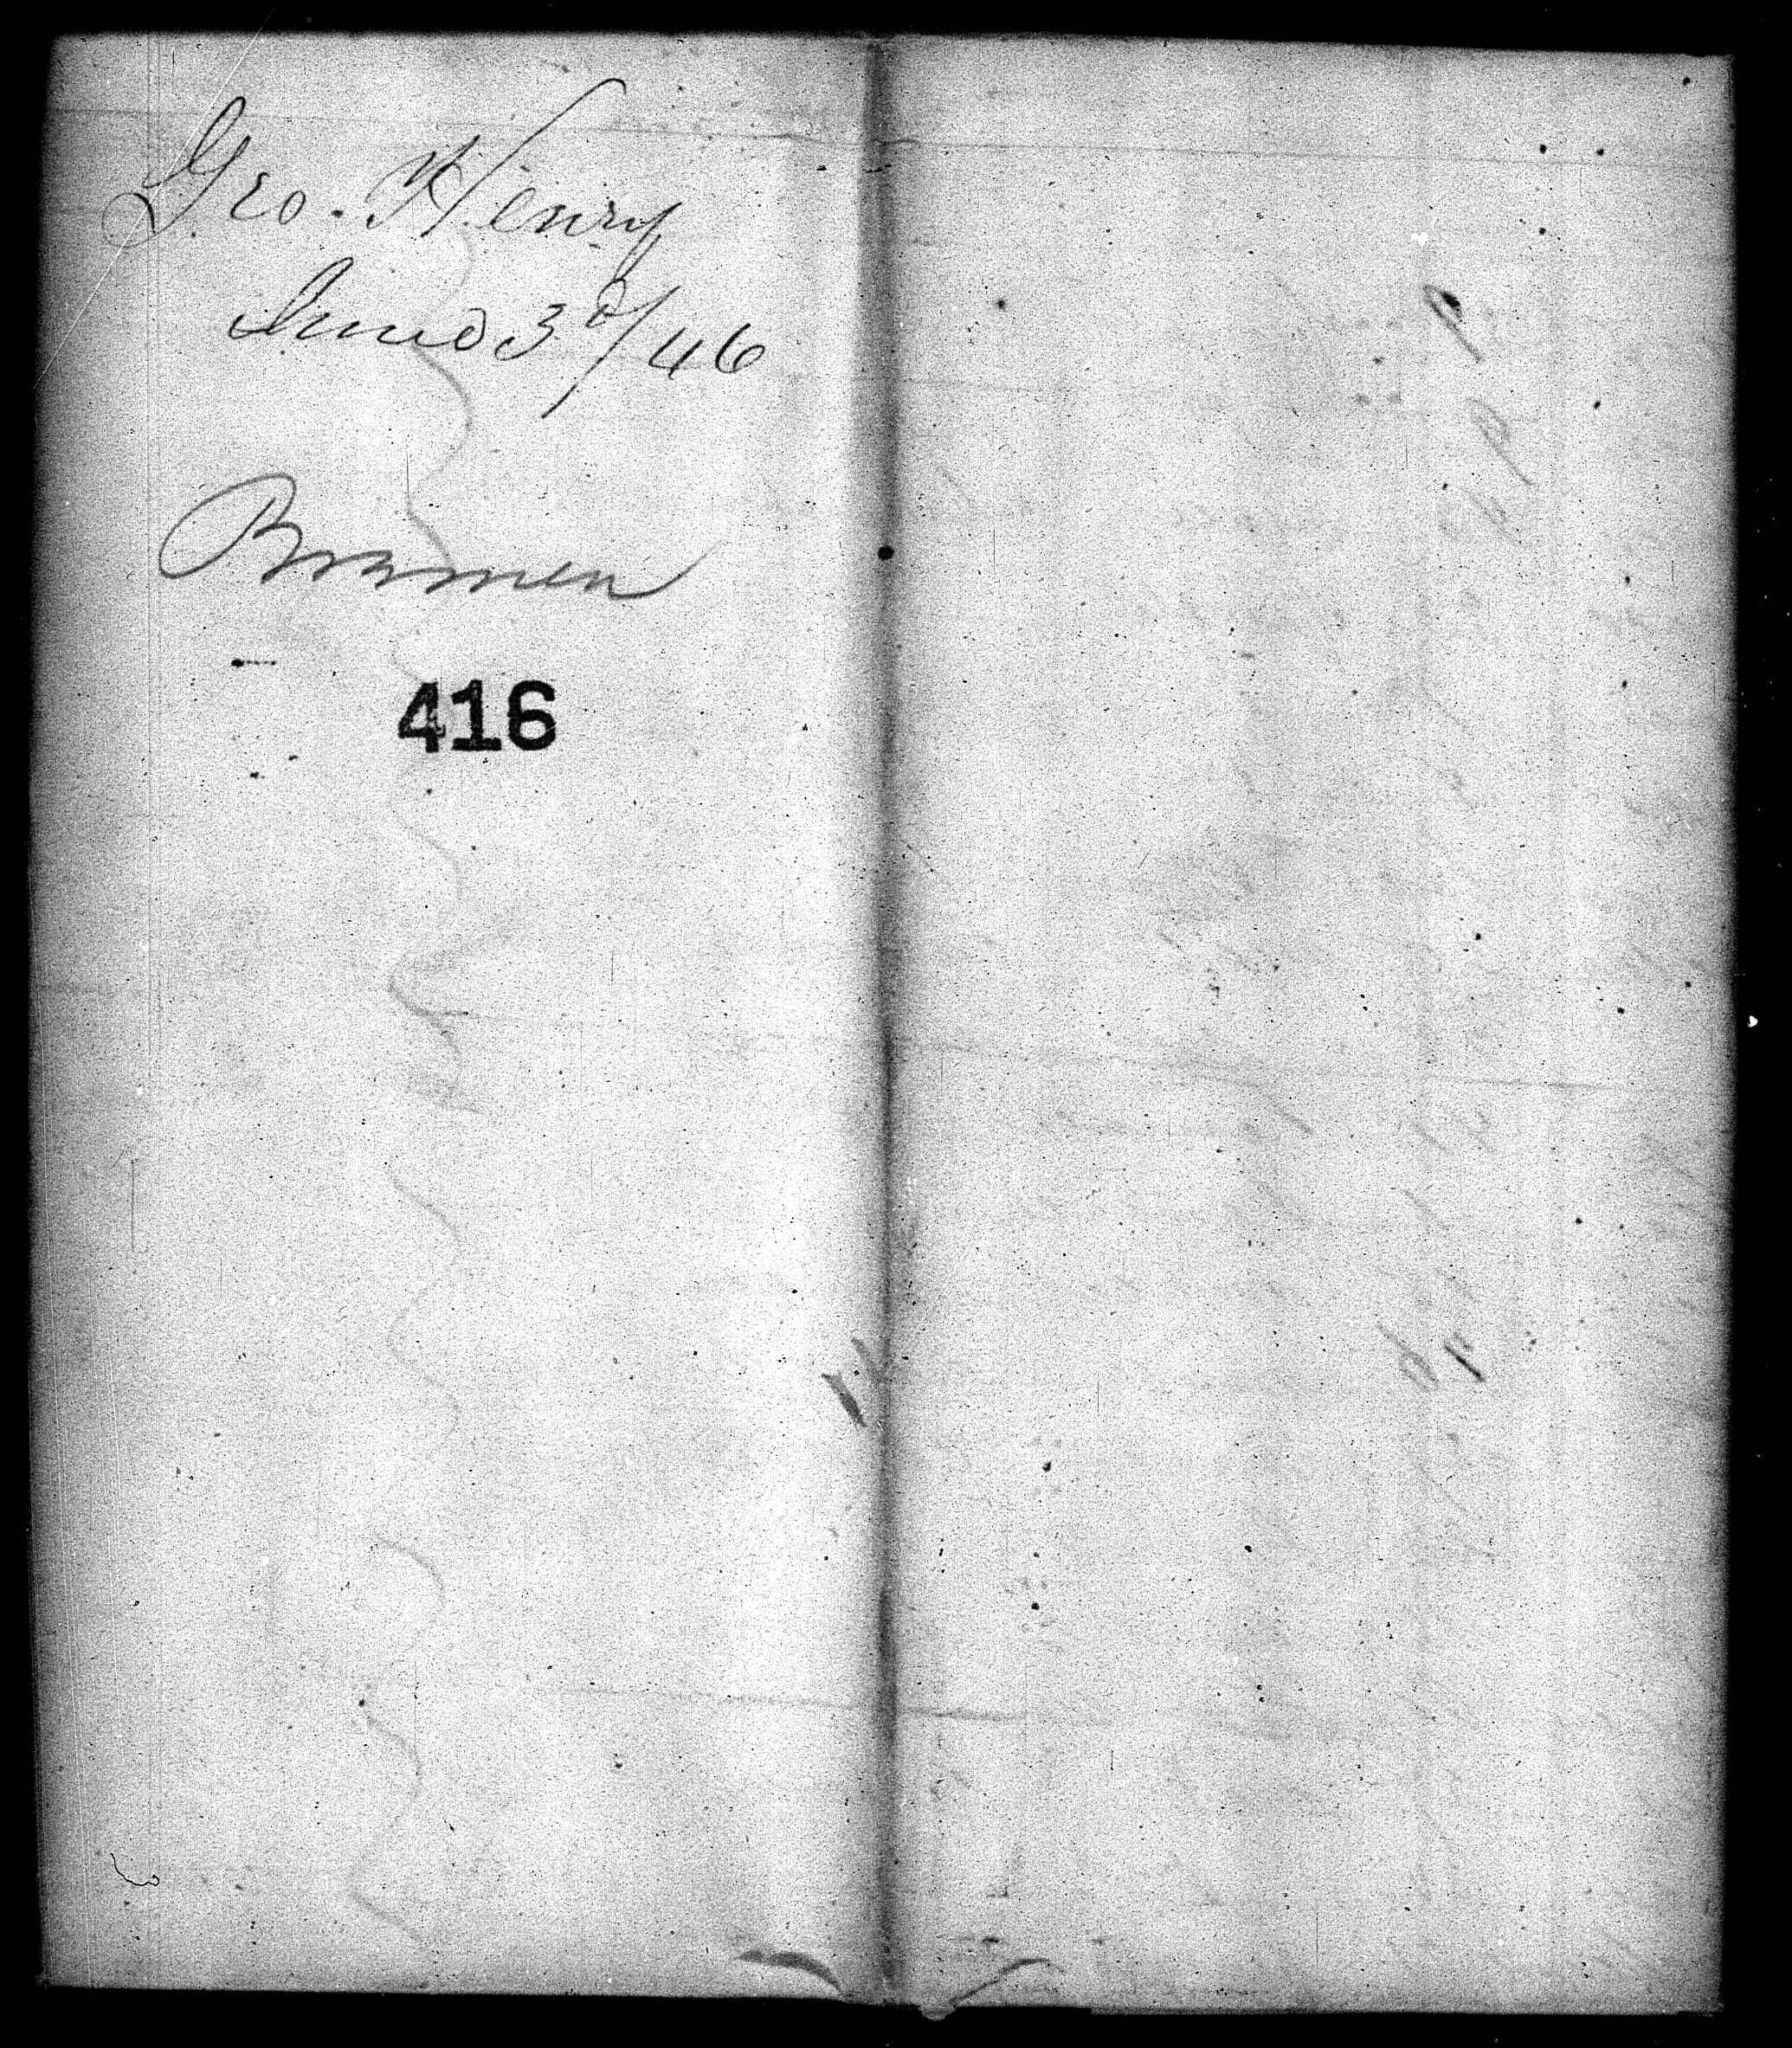 Geo. Henry
June 3d/46
Bremen
416